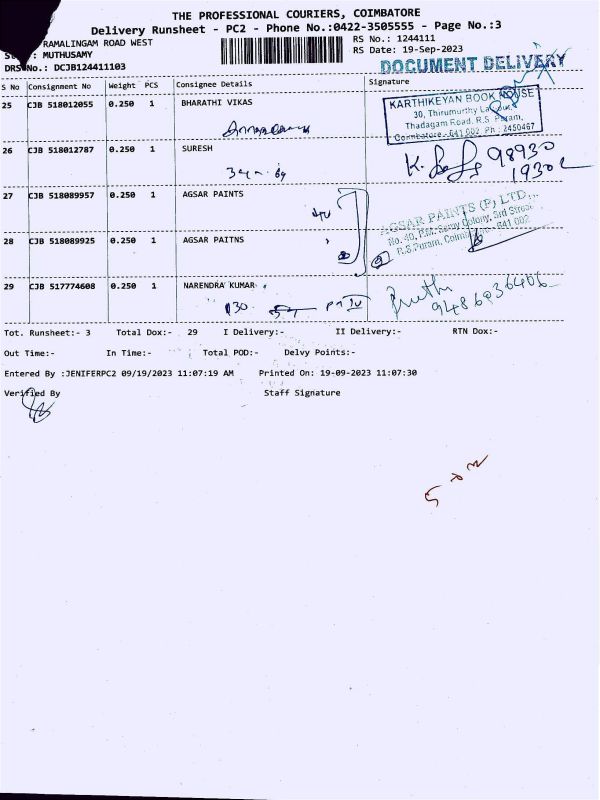 THE PROFESSIONAL COURIERS, COIMBATORE
Delivery Runsheet - PC2 - Phone No.:0422-3505555 - Page No.:3
RAMALINGAM ROAD WEST
RS No.: 1244111
: MUTHUSAMY
RS Date: 19-Sep-2023
DRS No.: DCJB124411103
DOCUMENT DELIVERY
S No Consignment No Weight PCS Consignee Details Signature
25 CJB 518012055 0.250 1 BHARATHI VIKAS
KARTHIKEYAN BOOK HOUSE
30, Thirumurthy Layout,
Thadagam Road, R.S. Puram,
Coimbatore - 641 002 Ph : 2450467
26 CJB 518012787 0.250 1 SURESH
98930
19302
27 CJB 518089957 0.250 1 AGSAR PAINTS
AGSAR PAINTS (P) LTD.,
No. 40, P.M. Samy Colony, 3rd Street
R.S.Puram, Coimbatore - 641 002
28 CJB 518089925 0.250 1 AGSAR PAITNS
29 CJB 517774608 0.250 1 NARENDRA KUMAR
9486036406
Tot. Runsheet:- 3 Total Dox:- 29 I Delivery:- II Delivery:- RTN Dox:-
Out Time:- In Time:- Total POD:- Delvy Points:-
Entered By :JENIFERPC2 09/19/2023 11:07:19 AM Printed On: 19-09-2023 11:07:30
Verified By Staff Signature